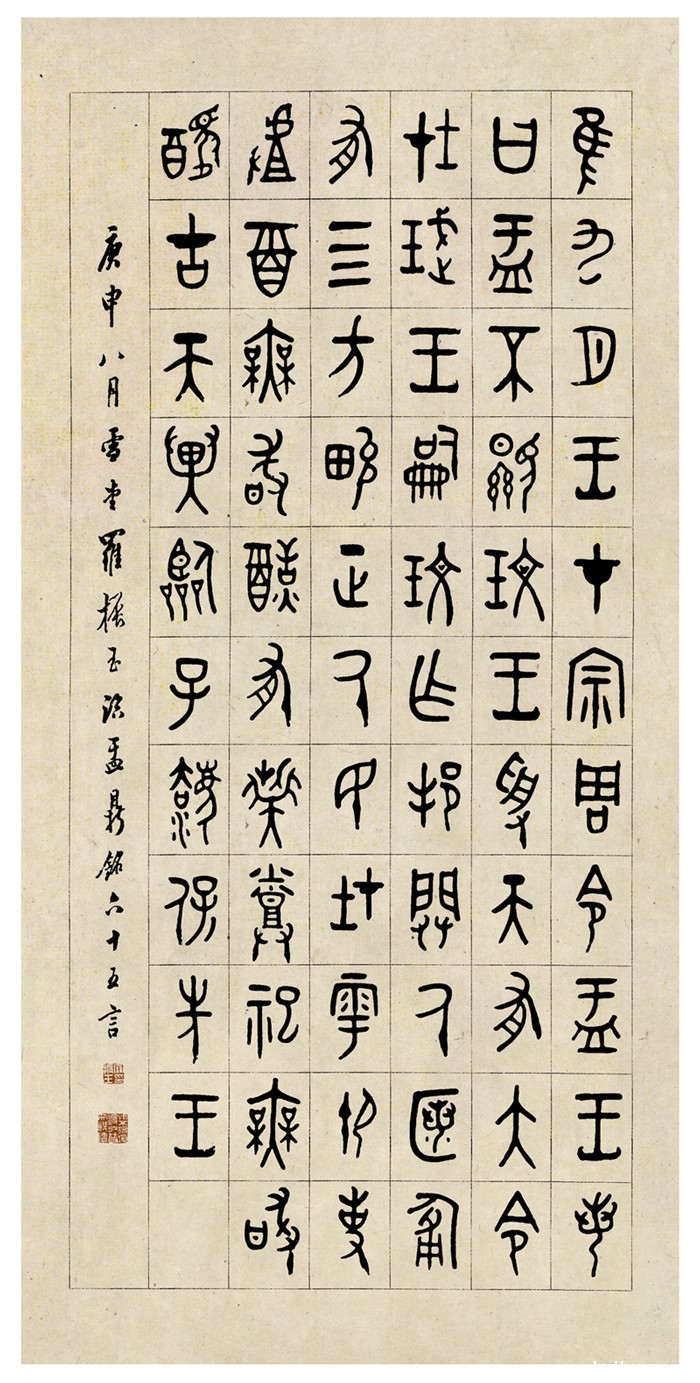 隹九月王才宗周令盂王若
曰盂不顯玟王受天有大令
在珷王嗣玟乍邦闢厥匿匍
有四方畯正厥民在雩御事
䖒酉無敢酖有髭烝祀無敢
醻古天異臨子灋保先王
庚申八月雪堂羅振玉臨盂鼎銘六十五言